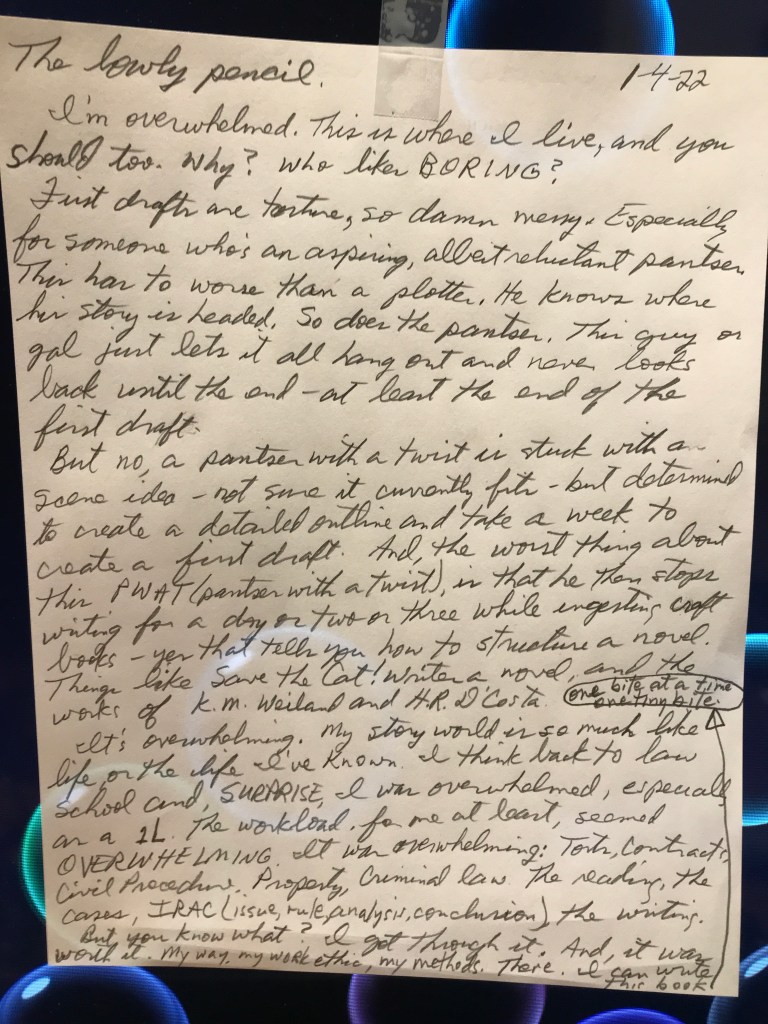 The lowly pencil. 1-4-22
I'm overwhelmed. This is where I live, and you
should too. Why? Who likes BORING?
First drafts are torture, so damn messy. Especially
for someone who's an aspiring, albeit reluctant pantser.
This has to worse than a plotter. He knows where
his story is headed. So does the pantser. This guy or
gal just lets it all hang out and never looks
back until the end - at least the end of the
first draft.
But no, a pantser with a twist is stuck with a
scene idea - not sure it currently fits - but determined
to create a detailed outline and take a week to
create a first draft. And, the worst thing about
this PWAT (pantser with a twist), is that he then stops
writing for a day or two or three while ingesting craft
books - yes that tells you how to structure a novel.
Things like Save the Cat! Writes a novel, and the
works of K.M. Weiland and H.R. D'Costa. one bite at a time
one tiny bite.
It's overwhelming. My story world is so much like
life or the life I've known. I think back to law
school and, SURPRISE, I was overwhelmed, especially
as a 1L. The workload, for me at least, seemed
OVERWHELMING. It was overwhelming: Torts, Contracts,
Civil Procedure, Property, Criminal law. The reading, the
cases, IRAC (issue, rule, analysis, conclusion), the writing.
But you know what? I got through it. And, it was
worth it. My way, my work ethic, my methods. There. I can write
this book